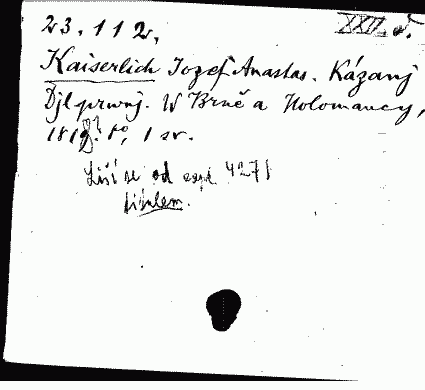 23.112.
XXII. d.
Kaiserlich Jozef Anastas. Kázanj
Djl prwnj. W Brně a Holomaucy,
181 8°, 1 sv.
Liší se od 4271
titulem.